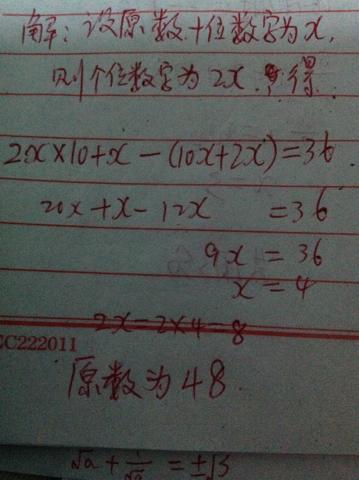 解：设原数十位数字为x,
则个位数字为2x.得
2x×10+x-(10x+2x)=36.
20x+x-12x =36
9x = 36
x = 4
2x=2×4=8
CC222011
原数为48.
√a + 1/√a = ±√3